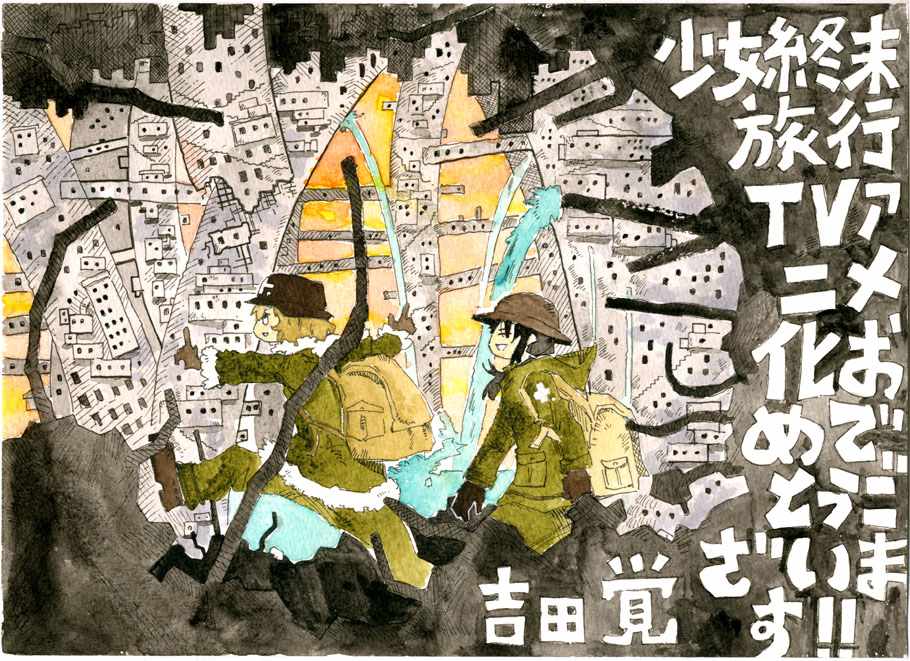 少女終末
旅行
TVア
ニメ
化お
めで
とうご
ざいま
す!!
吉田覚